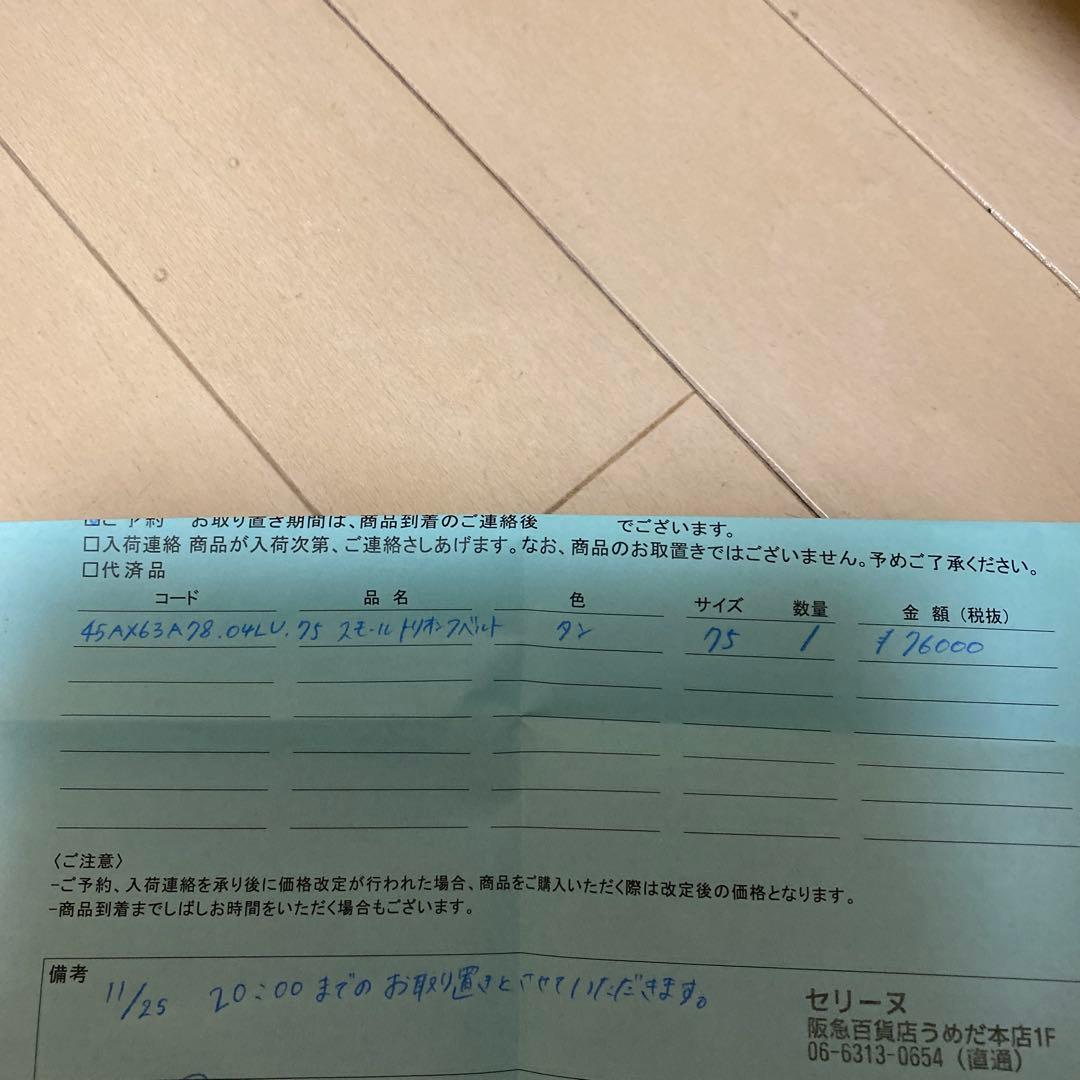 ご予約 お取り置き期間は、商品到着のご連絡後 でございます。
□入荷連絡 商品が入荷次第、ご連絡さしあげます。なお、商品のお取置きではございません。予めご了承ください。
□代済品
コード 品名 色 サイズ 数量 金額(税抜)
45AX63A78.04LU.75 スモールトリオンフベルト タン 75 1 ¥76000
〈ご注意〉
-ご予約、入荷連絡を承り後に価格改定が行われた場合、商品をご購入いただく際は改定後の価格となります。
-商品到着までしばしお時間をいただく場合もございます。
備考
11/25 20:00までのお取り置きとさせていただきます。
セリーヌ
阪急百貨店うめだ本店1F
06-6313-0654(直通)